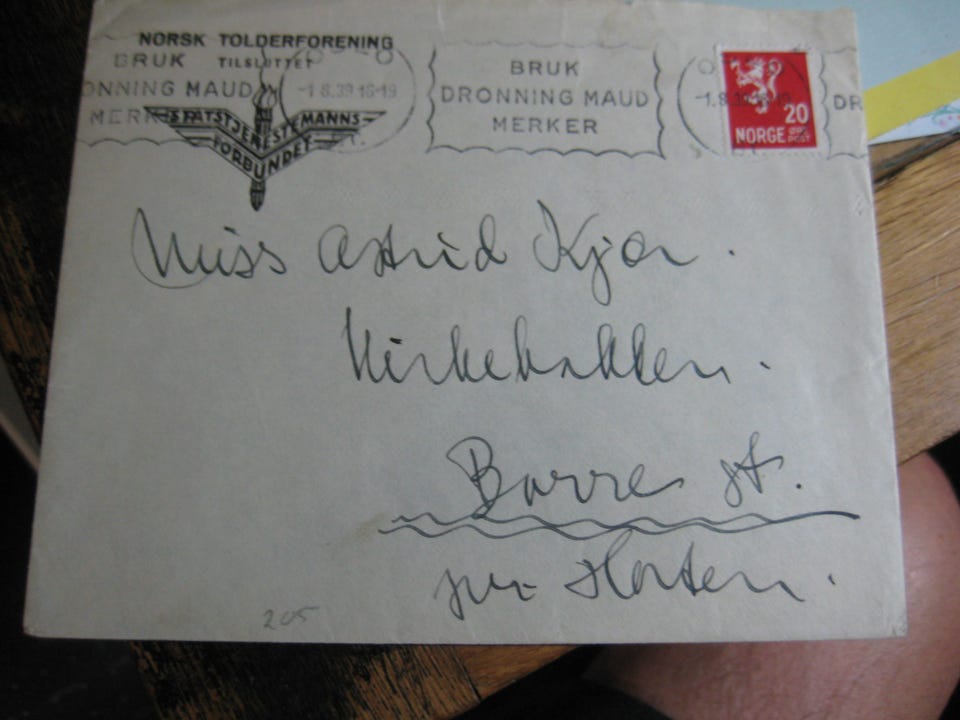 NORSK TOLDERFORENING
TILSLUTTET
STATSTJENESTEMANNS-
FORBUNDET
BRUK
DRONNING MAUD
MERKER
-1.8.39 16-19
BRUK
DRONNING MAUD
MERKER
-1.8.
DR
20
NORGE ØRE
POST
Miss Astrid Kjær.
Kirkebakken.
Borre st.
pr. Horten.
205